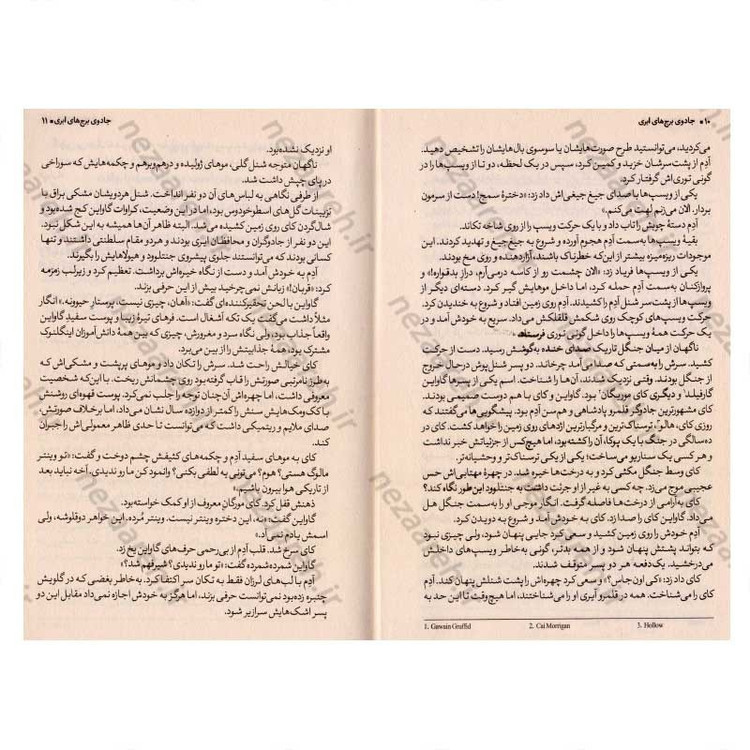 ۱۰ • جادوی برج‌های ابری
می‌کردید، می‌توانستید طرح صورت‌هایشان یا سوسوی بال‌هایشان را تشخیص دهید.
آدِم از پشت‌سرشان خزید و کمین کرد، سپس در یک لحظه، دو تا از ویسپ‌ها را در
گونی توری‌اش گرفتار کرد.
یکی از ویسپ‌ها با صدای جیغ جیغی‌اش داد زد: «دختره‌ٔ سمج! دست از سرمون
بردار. الان می‌زنم لهت می‌کنم.»
آدِم دستهٔ جوبش را تاب داد و با یک حرکت ویسپ را از روی شاخه تکاند.
بقیهٔ ویسپ‌ها به‌سمت آدِم هجوم آورده و شروع به جیغ‌جیغ و تهدید کردند. این
موجودات ریزه‌میزه بیشتر از این‌که خطرناک باشند، آزاردهنده و روی مخ بودند.
یکی از ویسپ‌ها فریاد زد: «الان چشمت رو از کاسه درمی‌آرم، درازِ بدقواره!» و
پروازکنان به‌سمت آدِم حمله کرد، اما آدِم موهایش گیر کرد. دسته‌ای دیگر از
ویسپ‌ها از پشت‌سر شنل آدِم را کشیدند. آدِم روی زمین افتاد و شروع به خندیدن کرد.
حرکت ویسپ‌های کوچک روی شکمش قلقلکش می‌داد. سریع به خودش آمد و در
یک حرکت همهٔ ویسپ‌ها را داخل گونی توری فرستاد.
ناگهان از میان جنگل تاریک صدای خنده به‌گوشش رسید. دست از حرکت
کشید. سرش را به‌سمتی که صدا می‌آمد چرخاند. دو پسر شنل‌پوش درحال خروج
از جنگل بودند. وقتی نزدیک شدند، آن‌ها را شناخت. اسم یکی از پسرها گاواین
گارفیلد و دیگری کای موریگان بود. گاواین و کای با هم دوست صمیمی بودند.
کای مشهورترین جادوگر قلمرو پادشاهی و هم‌سن آدِم بود. پیشگویی‌ها می‌گفتند که
روزی کای، هالو، ترسناک‌ترین و مرگبارترین اژدهای روی زمین را خواهد کشت. کای در
ده‌سالگی در جنگ با یک پوکا، آن را کشته بود، اما هیچ‌کس از جزئیاتش خبر نداشت
و هر کسی یک سناریو می‌ساخت؛ یکی از یکی ترسناک‌تر و وحشیانه‌تر.
کای وسط جنگل مکثی کرد و به درخت‌ها خیره شد. در چهرهٔ مهتابی‌اش حس
عجیبی موج می‌زد. چه کسی به غیر از او جرئت داشت به جنتلوود این‌طور نگاه کند؟
کای به‌آرامی از درخت‌ها فاصله گرفت. انگار موجی او را به‌سمت جنگل هل
می‌داد. گاواین کای را صدا زد. کای به خودش آمد و شروع به دویدن کرد.
آدِم خودش را روی زمین کشید و سعی کرد جایی پنهان شود، ولی چیزی نبود
که بتواند پشتش پنهان شود و از همه بدتر، گونی به‌خاطر ویسپ‌های داخلش
می‌درخشید. یک‌دفعه هر دو پسر متوقف شدند.
کای داد زد: «کی اون جاس؟» و سعی کرد چهره‌اش را پشت شنلش پنهان کند. آدِم
کای را می‌شناخت. همه در قلمرو آیری او را می‌شناختند، اما هیچ‌وقت تا این حد به
1. Gawain Gruffid
2. Cai Morrigan
3. Hollow
جادوی برج‌های ابری • ۱۱
او نزدیک نشده بود.
ناگهان متوجه شنل گلی، موهای ژولیده و درهم‌وبرهم و چکمه‌هایش که سوراخی
در پای چپش داشت شد.
از طرفی نگاهی به لباس‌های آن دو نفر انداخت. شنل هردویشان مشکی براق با
تزیینات گل‌های اسطوخودوس بود، اما در این وضعیت، کراوات گاواین کج شده بود و
شال‌گردن کای روی زمین کشیده می‌شد. البته ظاهر آن‌ها همیشه به این شکل نبود.
این دو نفر از جادوگران و محافظان ابری بودند و هردو مقام سلطنتی داشتند و تنها
کسانی بودند که می‌توانستند جلوی پیشروی جنتلوود و هیولاهایش را بگیرند.
آدِم به خودش آمد و دست از نگاه خیره‌اش برداشت. تعظیم کرد و زیرلب زمزمه
کرد: «قربان!» زبانش نمی‌چرخید بیش از این حرفی بزند.
گاواین با لحن تحقیرکننده‌ای گفت: «آهان، چیزی نیست. پرستار حیوونه.» انگار
مثلاً داشت می‌گفت یک تکه آشغال است. فرهای تیرهٔ زیبا و پوست سفید گاواین
واقعاً جذاب بود، ولی نگاه سرد و مغرورش، چیزی که بین همهٔ دانش‌آموزان اینگلنوک
مشترک بود، همهٔ جذابیتش را از بین می‌برد.
کای خیالش راحت شد. سرش را تکان داد و موهای پرپشت و مشکی‌اش که
به‌طرز نامرتبی صورتش را قاب گرفته بود روی چشمانش ریخت. با این‌که شخصیت
معروفی داشت، اما چهره‌اش آن‌چنان توجه را جلب نمی‌کرد. پوست قهوه‌ای روشنش
با کک‌ومک‌هایش سنش را کمتر از دوازده سال نشان می‌داد، اما برخلاف صورتش
صدای ملایم و ریتمیکی داشت که می‌توانست تا حدی ظاهر معمولی‌اش را جبران
کند.
کای به موهای سفید آدِم و چکمه‌های کثیفش چشم دوخت و گفت: «تو وینتر
مالوگ هستی؟ هوم؟ می‌تونی یه لطفی بکنی؟ وانمود کن ما رو ندیدی، آخه نباید بعد
از تاریکی هوا بیرون باشیم.»
ذهنش قفل کرد. کای مورگانِ معروف از او کمک خواسته بود.
گاواین گفت: «نه، این دختره وینتر نیست. وینتر مُرده. این خواهر دوقلوشه، ولی
اسمش یادم نمی‌آد.»
کای سرخ شد. قلب آدِم از بی‌رحمی حرف‌های گاواین یخ زد.
گاواین شمرده‌شمرده گفت: «تو ما رو ندیدی؟ شیرفهم شد؟»
آدِم با لب‌های لرزان فقط به تکان سر اکتفا کرد. به‌خاطر بغضی که در گلویش
چنبره زده بود نمی‌توانست حرفی بزند، اما هرگز به خودش اجازه نمی‌داد مقابل این دو
پسر اشک‌هایش سرازیر شود.